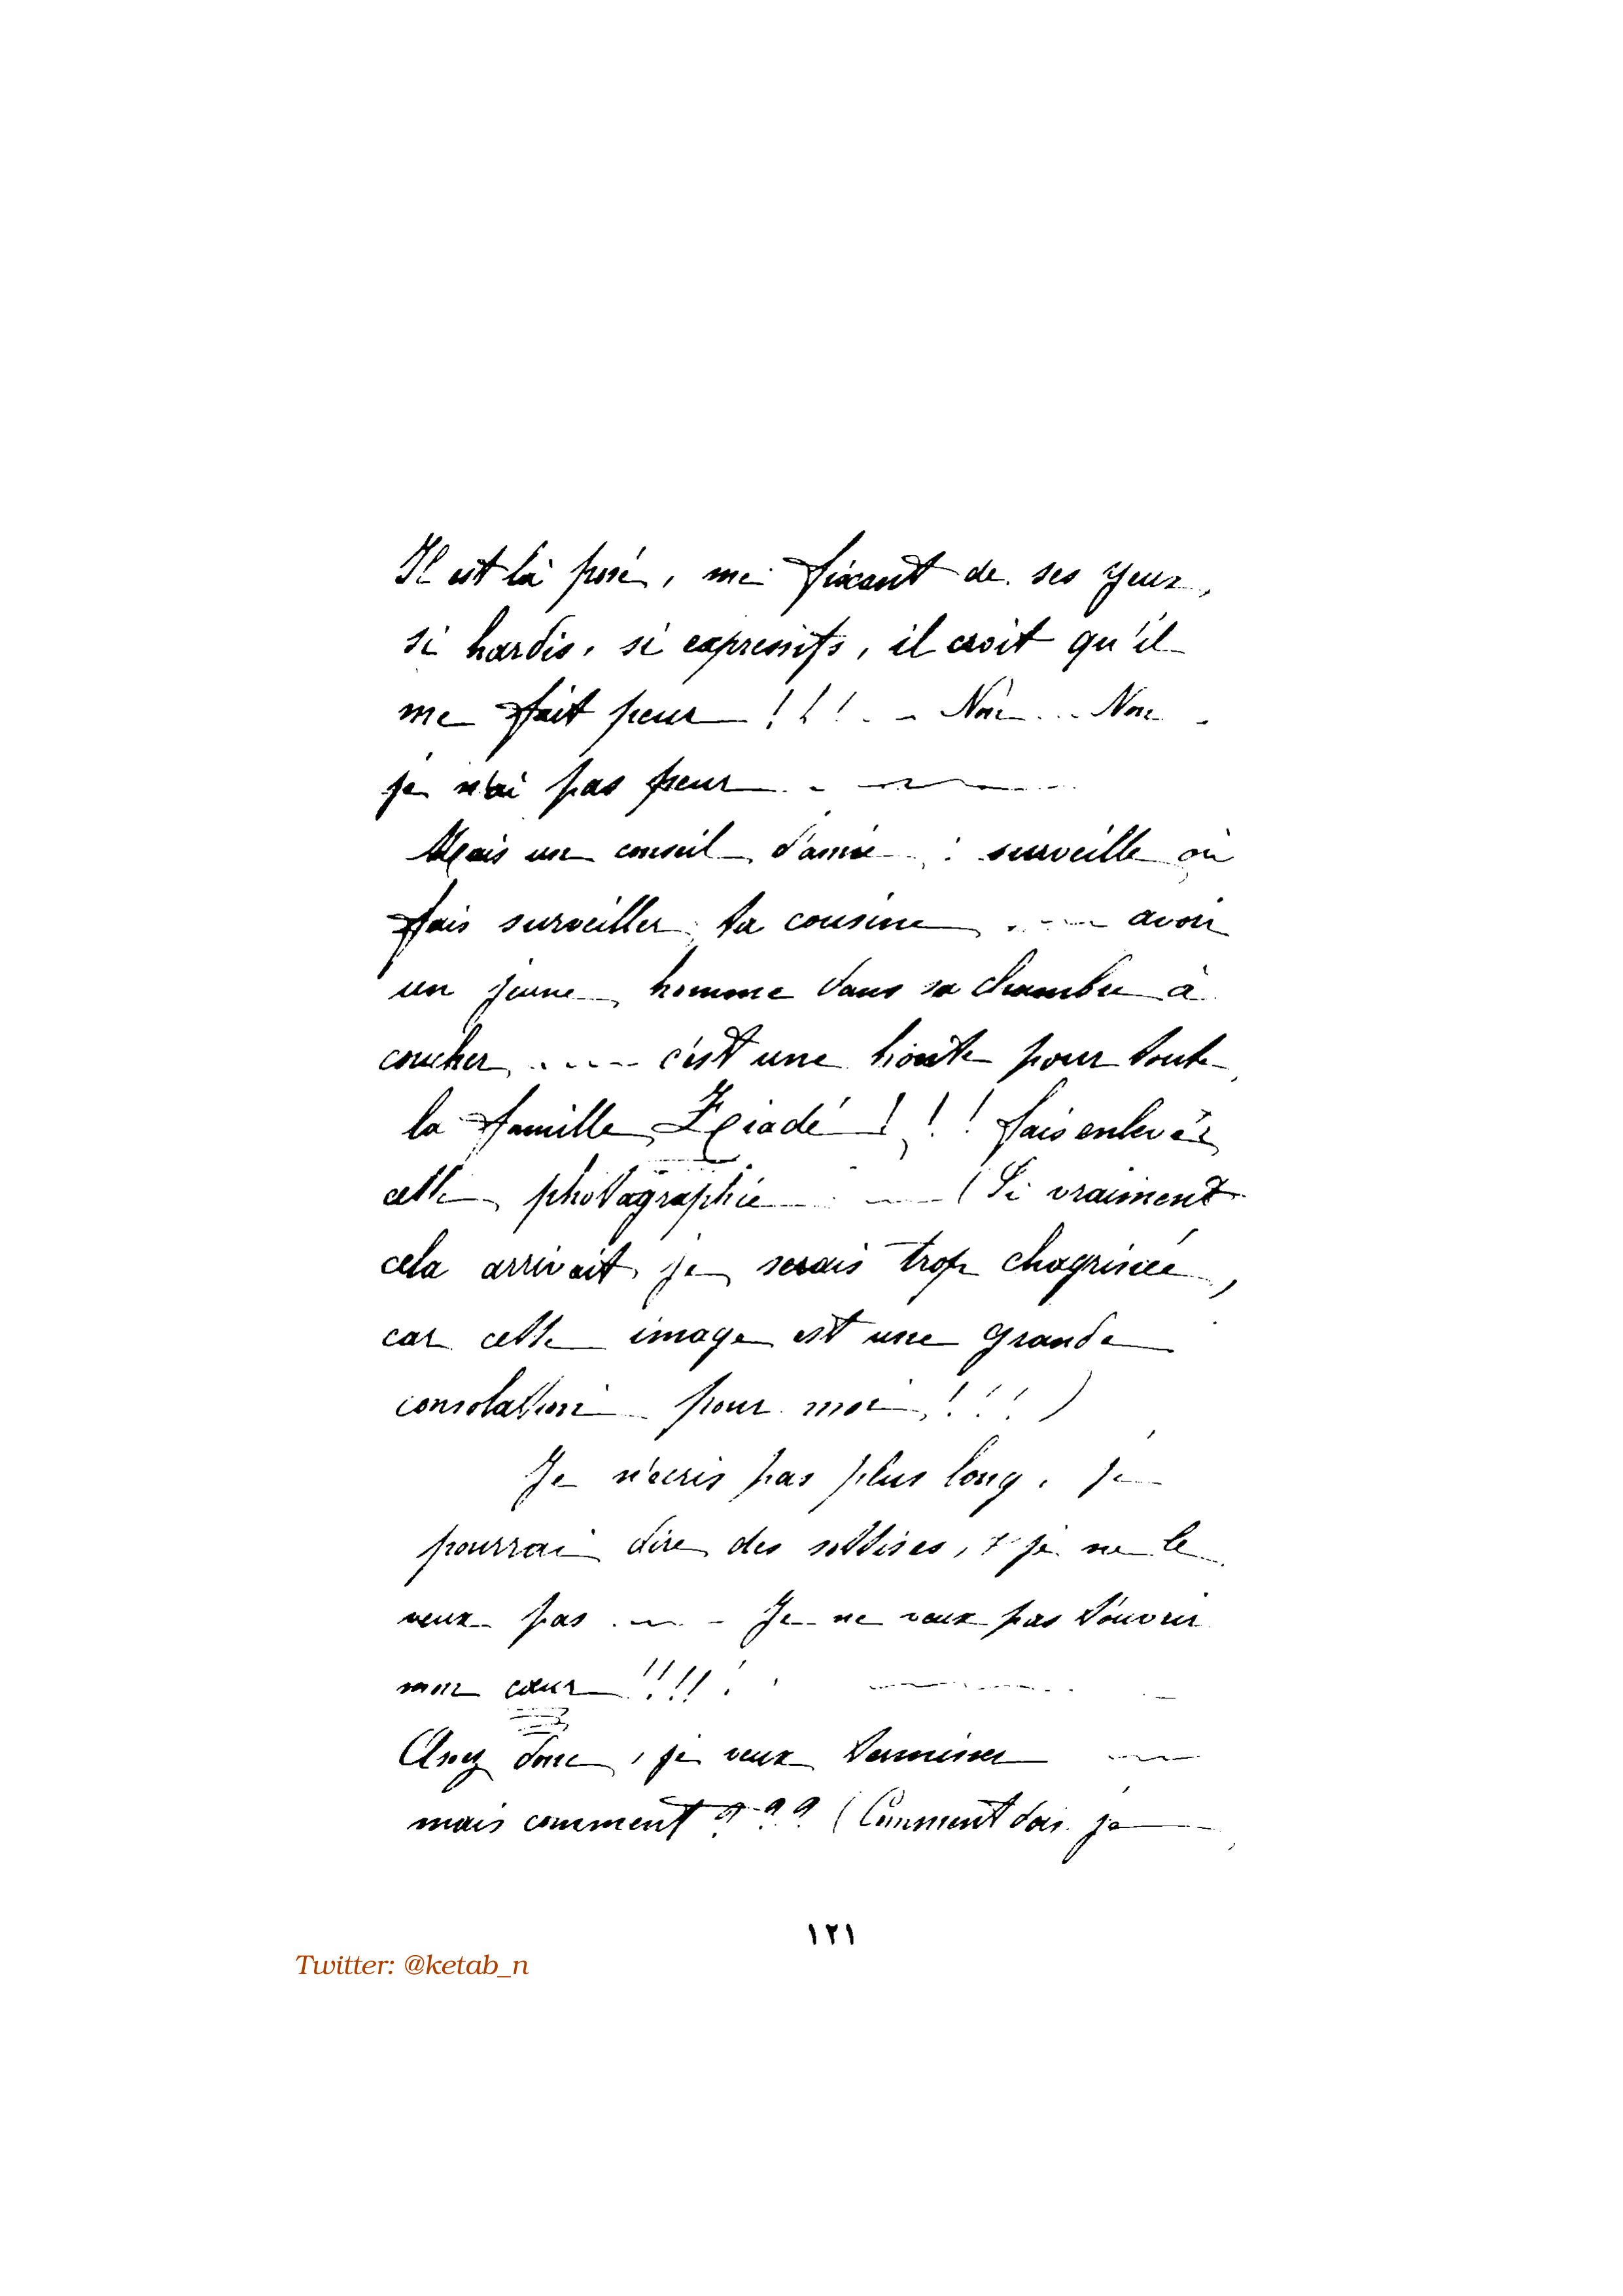 Il est là posé, me fixant de ses yeux,
si hardis, si expressifs, il croit qu'il
me fait peur !!! .. Non ... Non .
je n'ai pas peur ..
Mais un conseil d'amie : surveille où
fais surveiller ta cousine .... avoir
un jeune homme dans sa chambre à
coucher ..... c'est une honte pour toute
la famille Ziadé !!! fais enlever
cette photographie .... (Si vraiment
cela arrivait je serais trop chagrinée,
car cette image est une grande
consolation pour moi !!! )
Je n'écris pas plus long, je
pourrai dire des sottises, & je ne le
veux pas .... Je ne veux pas t'ouvrir
mon cœur !!!!
donc, je veux terminer
mais comment ??? (Comment dois-je
١٢١
Twitter: @ketab_n